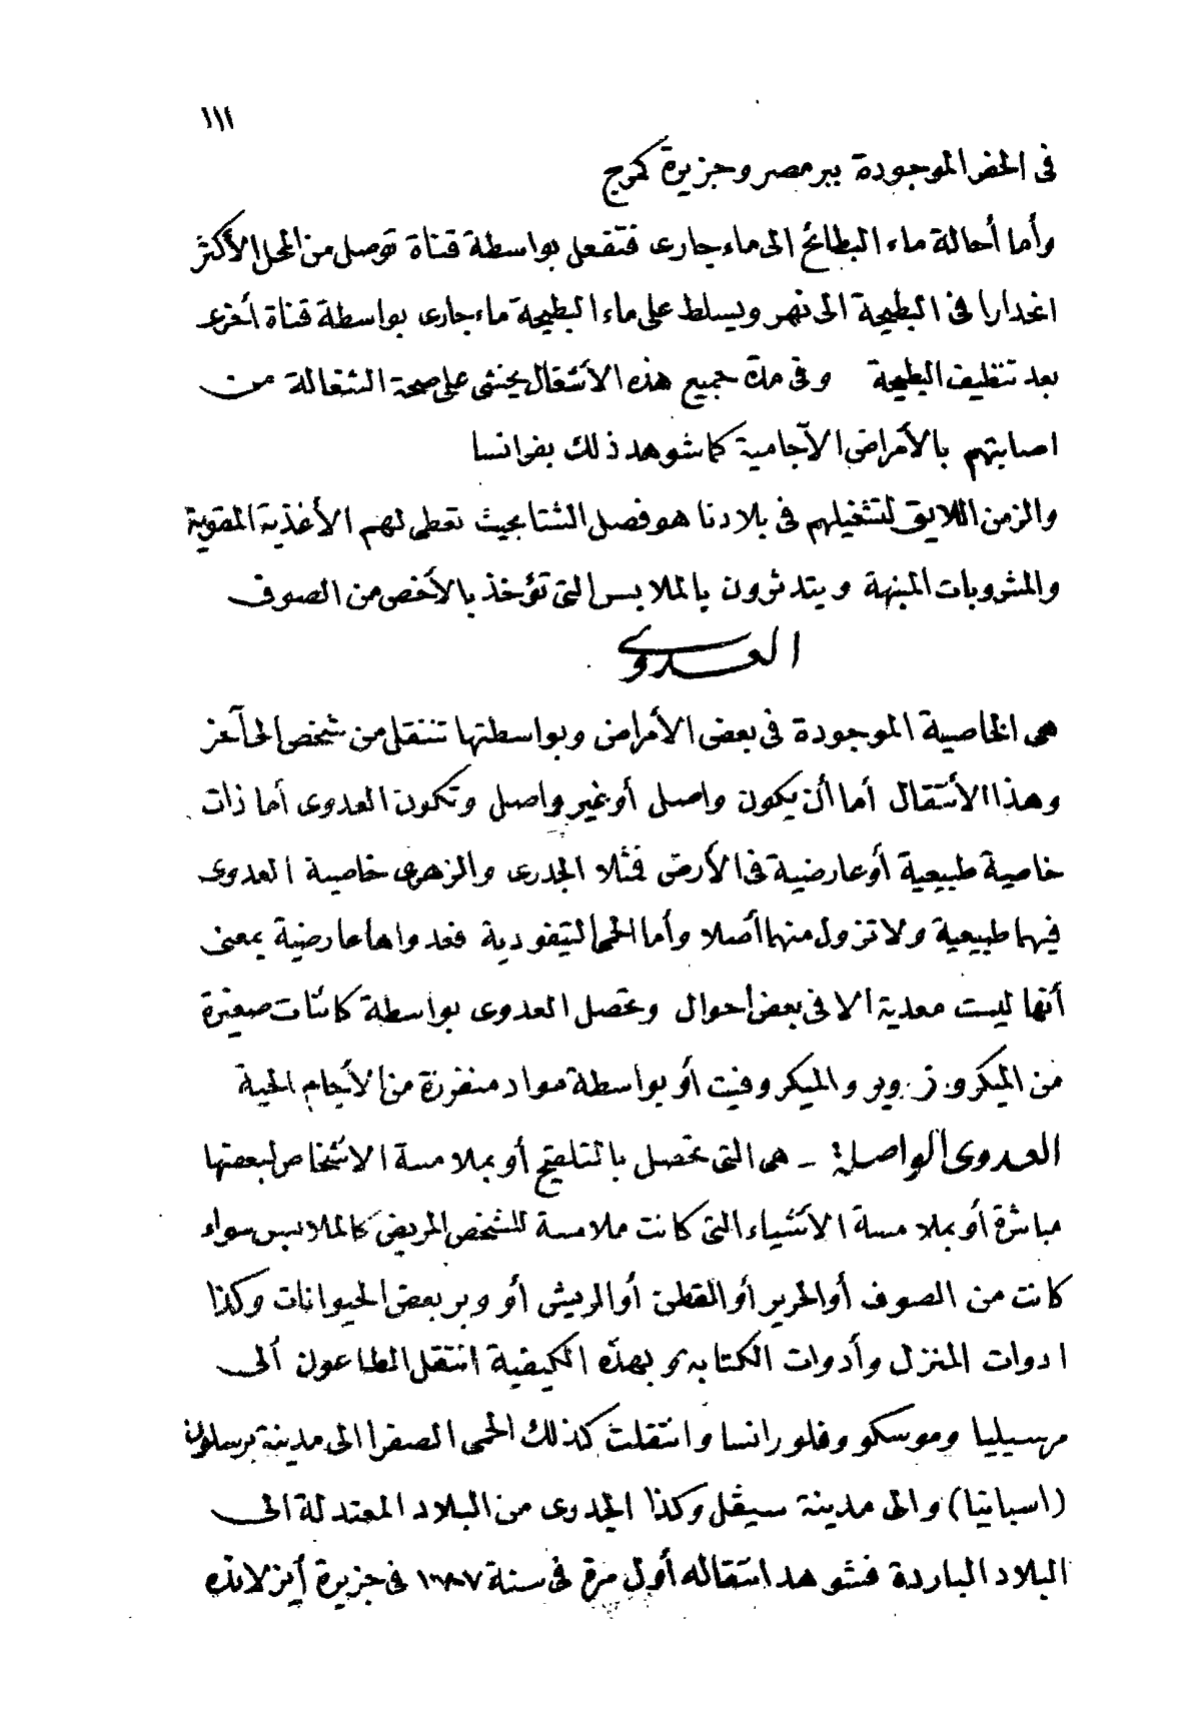 ١١١
فى الحفر الموجودة ببر مصر وجزيرة كمرج
وأما أحالة ماء البطائح الى ماء جارى فتفعل بواسطة قناة توصل من المحل الأكثر
انحدارا فى البطيحة الى نهر ويسلط على ماء البطيحة ماء جارى بواسطة قناة أخرى
بعد تنظيف البطيحة وفى مدة جميع هذه الأشغال يخشى على صحة الشغالة من
اصابتهم بالأمراض الآجامية كما شوهد ذلك بفرانسا
والزمن اللايق لتشغيلهم فى بلادنا هو فصل الشتا بحيث تعطى لهم الأغذية المقوية
والمشروبات المنبهة ويتدثرون بالملابس التى تؤخذ بالأخص من الصوف
العدوى
هى الخاصية الموجودة فى بعض الأمراض وبواسطتها تنتقل من شخص الى آخر
وهذا الأنتقال أما أن يكون واصلى أو غير واصلى وتكون العدوى أما ذات
خاصية طبيعية أو عارضية فى الأرض فمثلا الجدرى والزهرى خاصية العدوى
فيهما طبيعية ولا تزول منهما أصلا وأما الحمى التيفودية فعدواها عارضية بمعنى
أنها ليست معدية الا فى بعض احوال وتحصل العدوى بواسطة كائنات صغيرة
من الميكروزوير والميكروفيت أو بواسطة مواد منفرزة من الأجسام الحية
العدوى الواصلة ـ هى التى تحصل بالتلقيح أو بملامسة الاشخاص لبعضها
مباشرة أو بملامسة الأشياء التى كانت ملامسة للشخص المريض كالملابس سواء
كانت من الصوف أو الحرير أو القطن أو الريش أو وبر بعض الحيوانات وكذا
ادوات المنزل وأدوات الكتابه وبهذه الكيفية انتقل الطاعون ألى
مرسيليا وموسكو وفلورانسا وانتقلت كذلك الحمى الصفرا الى مدينة برسلون
(اسبانيا) والى مدينة سيڤل وكذا الجدرى من البلاد المعتدلة الى
البلاد الباردة فشوهد انتقاله أول مرة فى سنة ١٦٨٠٧ فى جزيرة أيزلانده